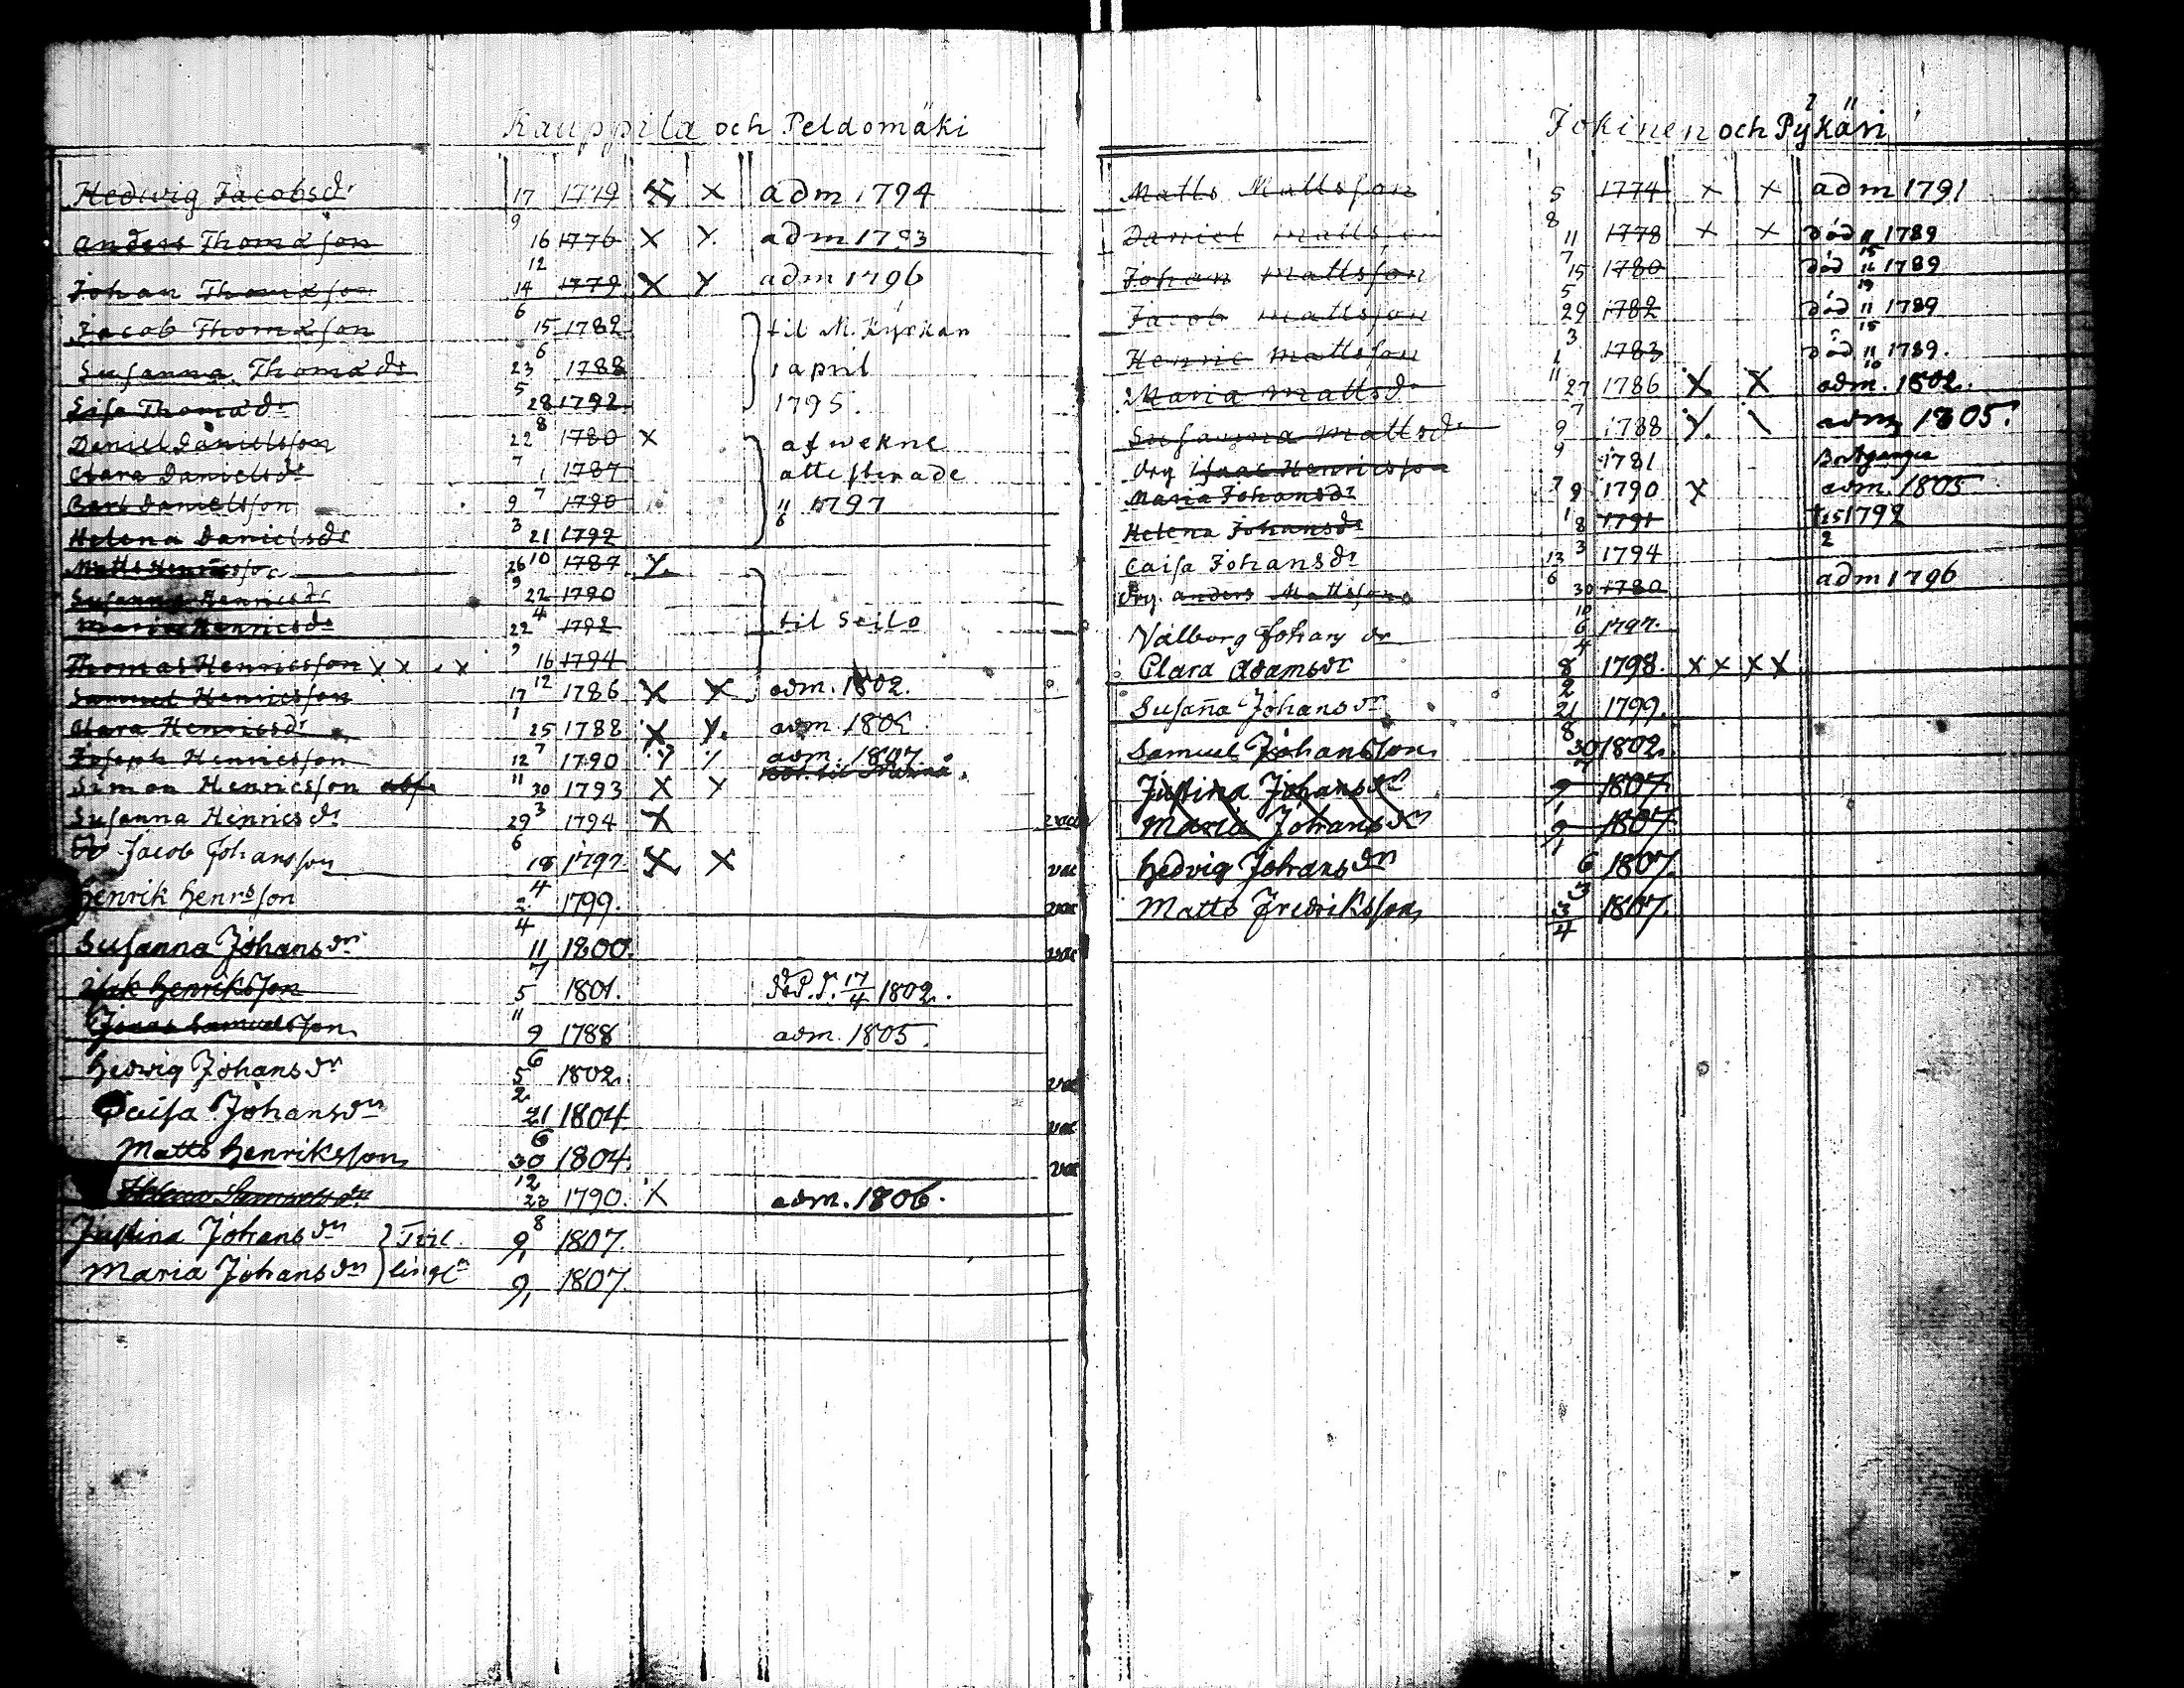 Kauppila och Peldomäki
Hedwig Jacobsdr 17 1779 X X adm 1794
9
Anders Thomasson 16 1776 X X adm 1793
12
Johan Thomasson 14 1779 X X adm 1796
6
Jacob Thomasson 15 1782 til M. Kyrkan
6
Susanna Thomasdr 23 1788 1 april
5
Lisa Thomadr 28 1792 1795.
8
Daniel Danielsson 22 1780 X af wekne
7
Clara Danielsdr 1 1787 attesterade
7
Carl Danielsson 9 1790 11 1797
3 6
Helena Danielsdr 21 1792
10
Matts Henricsson 26 1787 X
9
Susanna Henricsdr 22 1790
4
Maria Henricsdr 22 1792 til Seilo
9
Thomas Henricsson X X X 16 1794
12
Samuel Henricsson 17 1786 X X adm. 1802.
1
Clara Henricsdr 25 1788 X X. adm 1805
7
Joseph Henricsson 12 1790 X X adm. 1807.
11
Simon Henricsson 30 1793 X X
3
Susanna Henricsdr 29 1794 X vac
6
Jacob Johansson 18 1797 X X vac
4
Henrik Henrsson 3 1799. vac
4
Susanna Johansdr 11 1800. vac
7
Isak Henriksson 5 1801. död. d. 17/4 1802.
11
Jonas Samuelsson 9 1788 adm. 1805.
6
Hedwig Johansdr 5 1802. vac
2
Caisa Johansdr 21 1804 vac
6
Matts Henriksson 30 1804. vac
12
Helena Samuelsdr 23 1790. X adm. 1806.
8
Justina Johansdr 9 1807.
1
Maria Johansdr 9 1807.
1
Jokinen och Pykäri
Matts Mattsson 5 1774 X X adm 1791
8
Daniel Mattsson 11 1778 X X död 11 1789
7 15
Johan Mattsson 15 1780 död 11 1789
5 19
Jacob Mattsson 29 1782 död 11 1789
3 15
Henric Mattsson 1 1783 död 11 1789.
11 10
Maria Mattsdr 27 1786 X X adm. 1802.
7
Susanna Mattsdr 9 1788 X. \ adm 1805.
9
drg Isaac Henricsson 1781 Bortgången
7
Maria Johansdr 9 1790 X adm. 1805
1
Helena Johansdr 8 1791 † 15 1792
3 2
Caisa Johansdr 13 1794
6
drg. Anders Mattsson 30 1780 adm 1796
10
Valborg Johansdr 6 1797.
4
Clara Adamsdr 8 1798. X X X X
2
Susaña Johansdr 21 1799.
8
Samuel Johansson 30 1802.
7
Justina Johansdr 9 1807.
1
Maria Johansdr 9 1807
1
Hedvig Johansdr 6 1807.
3
Matts Fredriksson 3 1807.
4